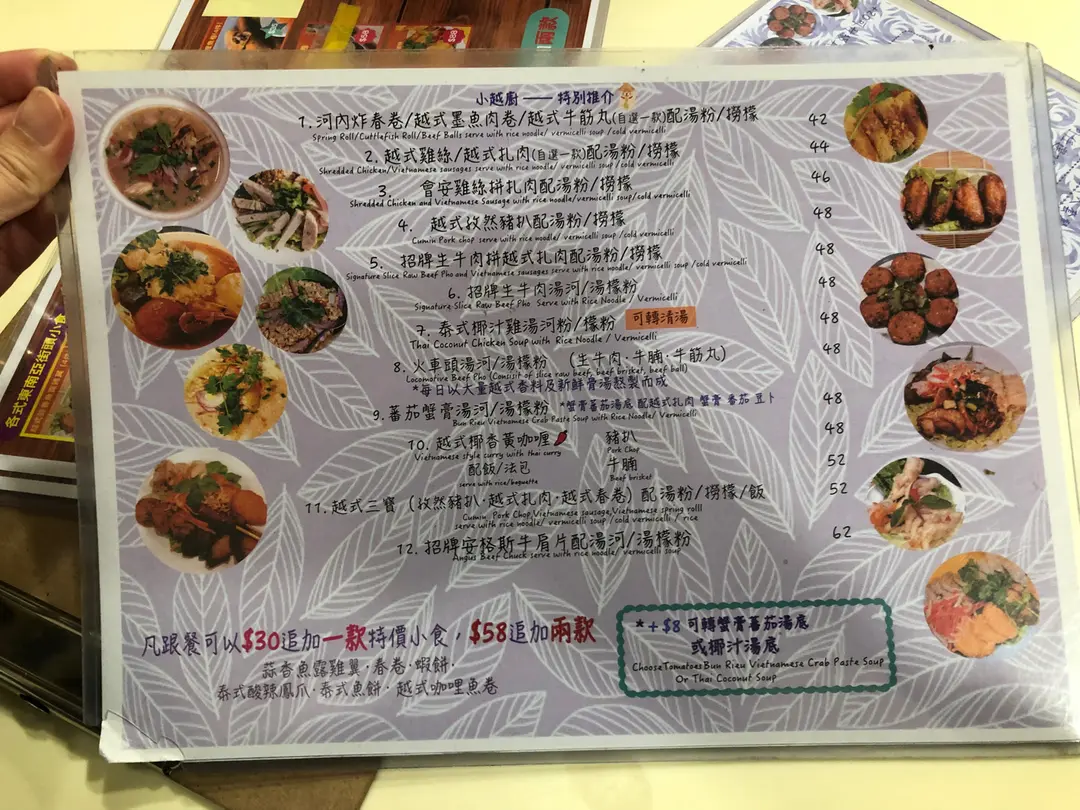 小越廚 —— 特別推介
1. 河內炸春卷/越式墨魚肉卷/越式牛筋丸(自選一款)配湯粉/撈檬 42
Spring Roll/Cuttlefish Roll/Beef Balls serve with rice noodle/ vermicelli soup /cold vermicelli
2. 越式雞絲/越式扎肉(自選一款)配湯粉/撈檬 44
Shredded Chicken/Vietnamese sausages serve with rice noodle/ vermicelli soup /cold vermicelli
3. 會安雞絲拼扎肉配湯粉/撈檬 46
Shredded Chicken and Vietnamese Sausage with rice noodle/vermicelli soup/cold vermicelli
4. 越式孜然豬扒配湯粉/撈檬 48
Cumin Pork chop serve with rice noodle/ vermicelli soup /cold vermicelli
5. 招牌生牛肉拼越式扎肉配湯粉/撈檬 48
Signature Slice Raw Beef Pho and Vietnamese sausages serve with rice noodle/ vermicelli soup /cold vermicelli
6. 招牌生牛肉湯河/湯檬粉 48
Signature Slice Raw Beef Pho Serve with Rice Noodle / Vermicelli
7. 泰式椰汁雞湯河粉/檬粉 可轉清湯 48
Thai Coconut Chicken Soup with Rice Noodle / Vermicelli
8. 火車頭湯河/湯檬粉 (生牛肉·牛腩·牛筋丸) 48
Locomotive Beef Pho (Consist of slice raw beef, beef brisket, beef ball)
*每日以大量越式香料及新鮮骨湯熬製而成
9. 蕃茄蟹膏湯河/湯檬粉 *蟹膏蕃茄湯底 配越式扎肉 蟹膏 番茄 豆卜 48
Bun Rieu Vietnamese Crab Paste Soup with Rice Noodle/ Vermicelli
10. 越式椰香黃咖喱 豬扒 48
Vietnamese style curry with thai curry Pork Chop
配飯/法包 牛腩 52
serve with rice/baguette Beef brisket
11. 越式三寶 (孜然豬扒·越式扎肉·越式春卷) 配湯粉/撈檬/飯 52
Cumin Pork Chop,Vietnamese sausage,Vietnamese spring rolll
serve with rice noodle/ vermicelli soup /cold vermicelli / rice
12. 招牌安格斯牛肩片配湯河/湯檬粉 62
Angus Beef Chuck serve with rice noodle/ vermicelli soup
凡跟餐可以$30追加一款特價小食，$58追加兩款
蒜香魚露雞翼·春卷·蝦餅·
泰式酸辣鳳爪·泰式魚餅·越式咖哩魚卷
*+$8 可轉蟹膏蕃茄湯底
或椰汁湯底
ChooseTomatoesBun Rieu Vietnamese Crab Paste Soup
Or Thai Coconut Soup
各式東南亞街頭小食